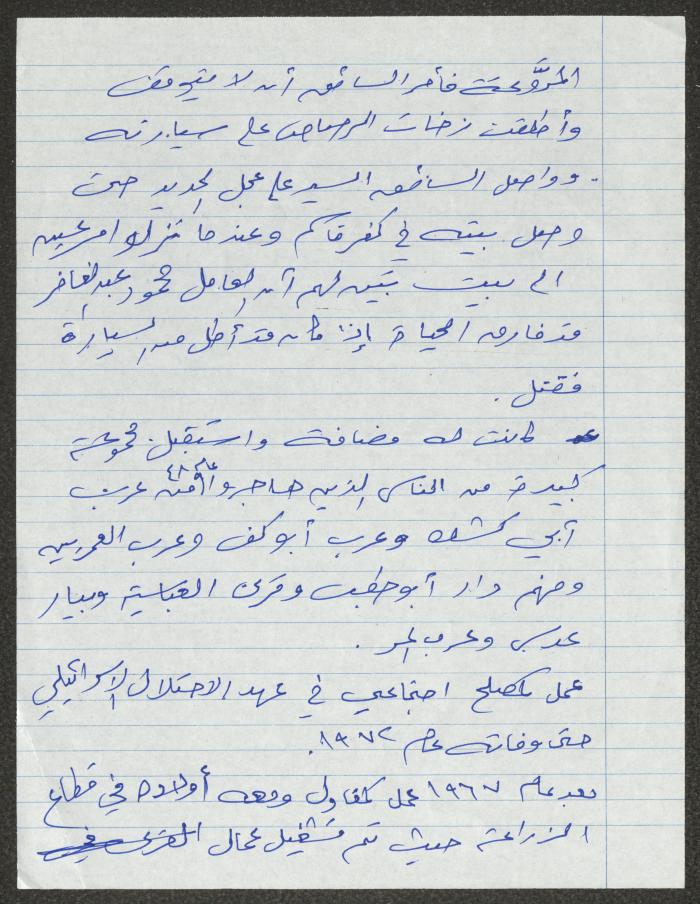 المروّعة فأمر السائق أن لا يتوقف
وأطلقت زخات الرصاص على سيارته
. وواصل السائق السير على عجل الحديد حتى
وصل بيته في كفرقاسم وعندما نزلوا مسرعين
الى بيت تبين لهم أن العامل محمود عبد الغافر
قد فارق الحياة إذا كان قد أطل من السيارة
فقتل .
كانت له مضافة واستقبل مجموعة
كبيرة من الناس الذين هاجروا عام ٤٨ من عرب
أبي كشك وعرب أبو كف وعرب العمريين
ومنهم دار أبو حطب وقرى العباسية وبيار
عدس وعرب المر .
عمل كمصلح اجتماعي في عهد الاحتلال الإسرائيلي
حتى وفاته عام ١٩٧٢ .
بعد عام ١٩٦٧ عمل كمقاول ومعه أولاده في قطاع
الزراعة حيث تم تشغيل عمال القرى في